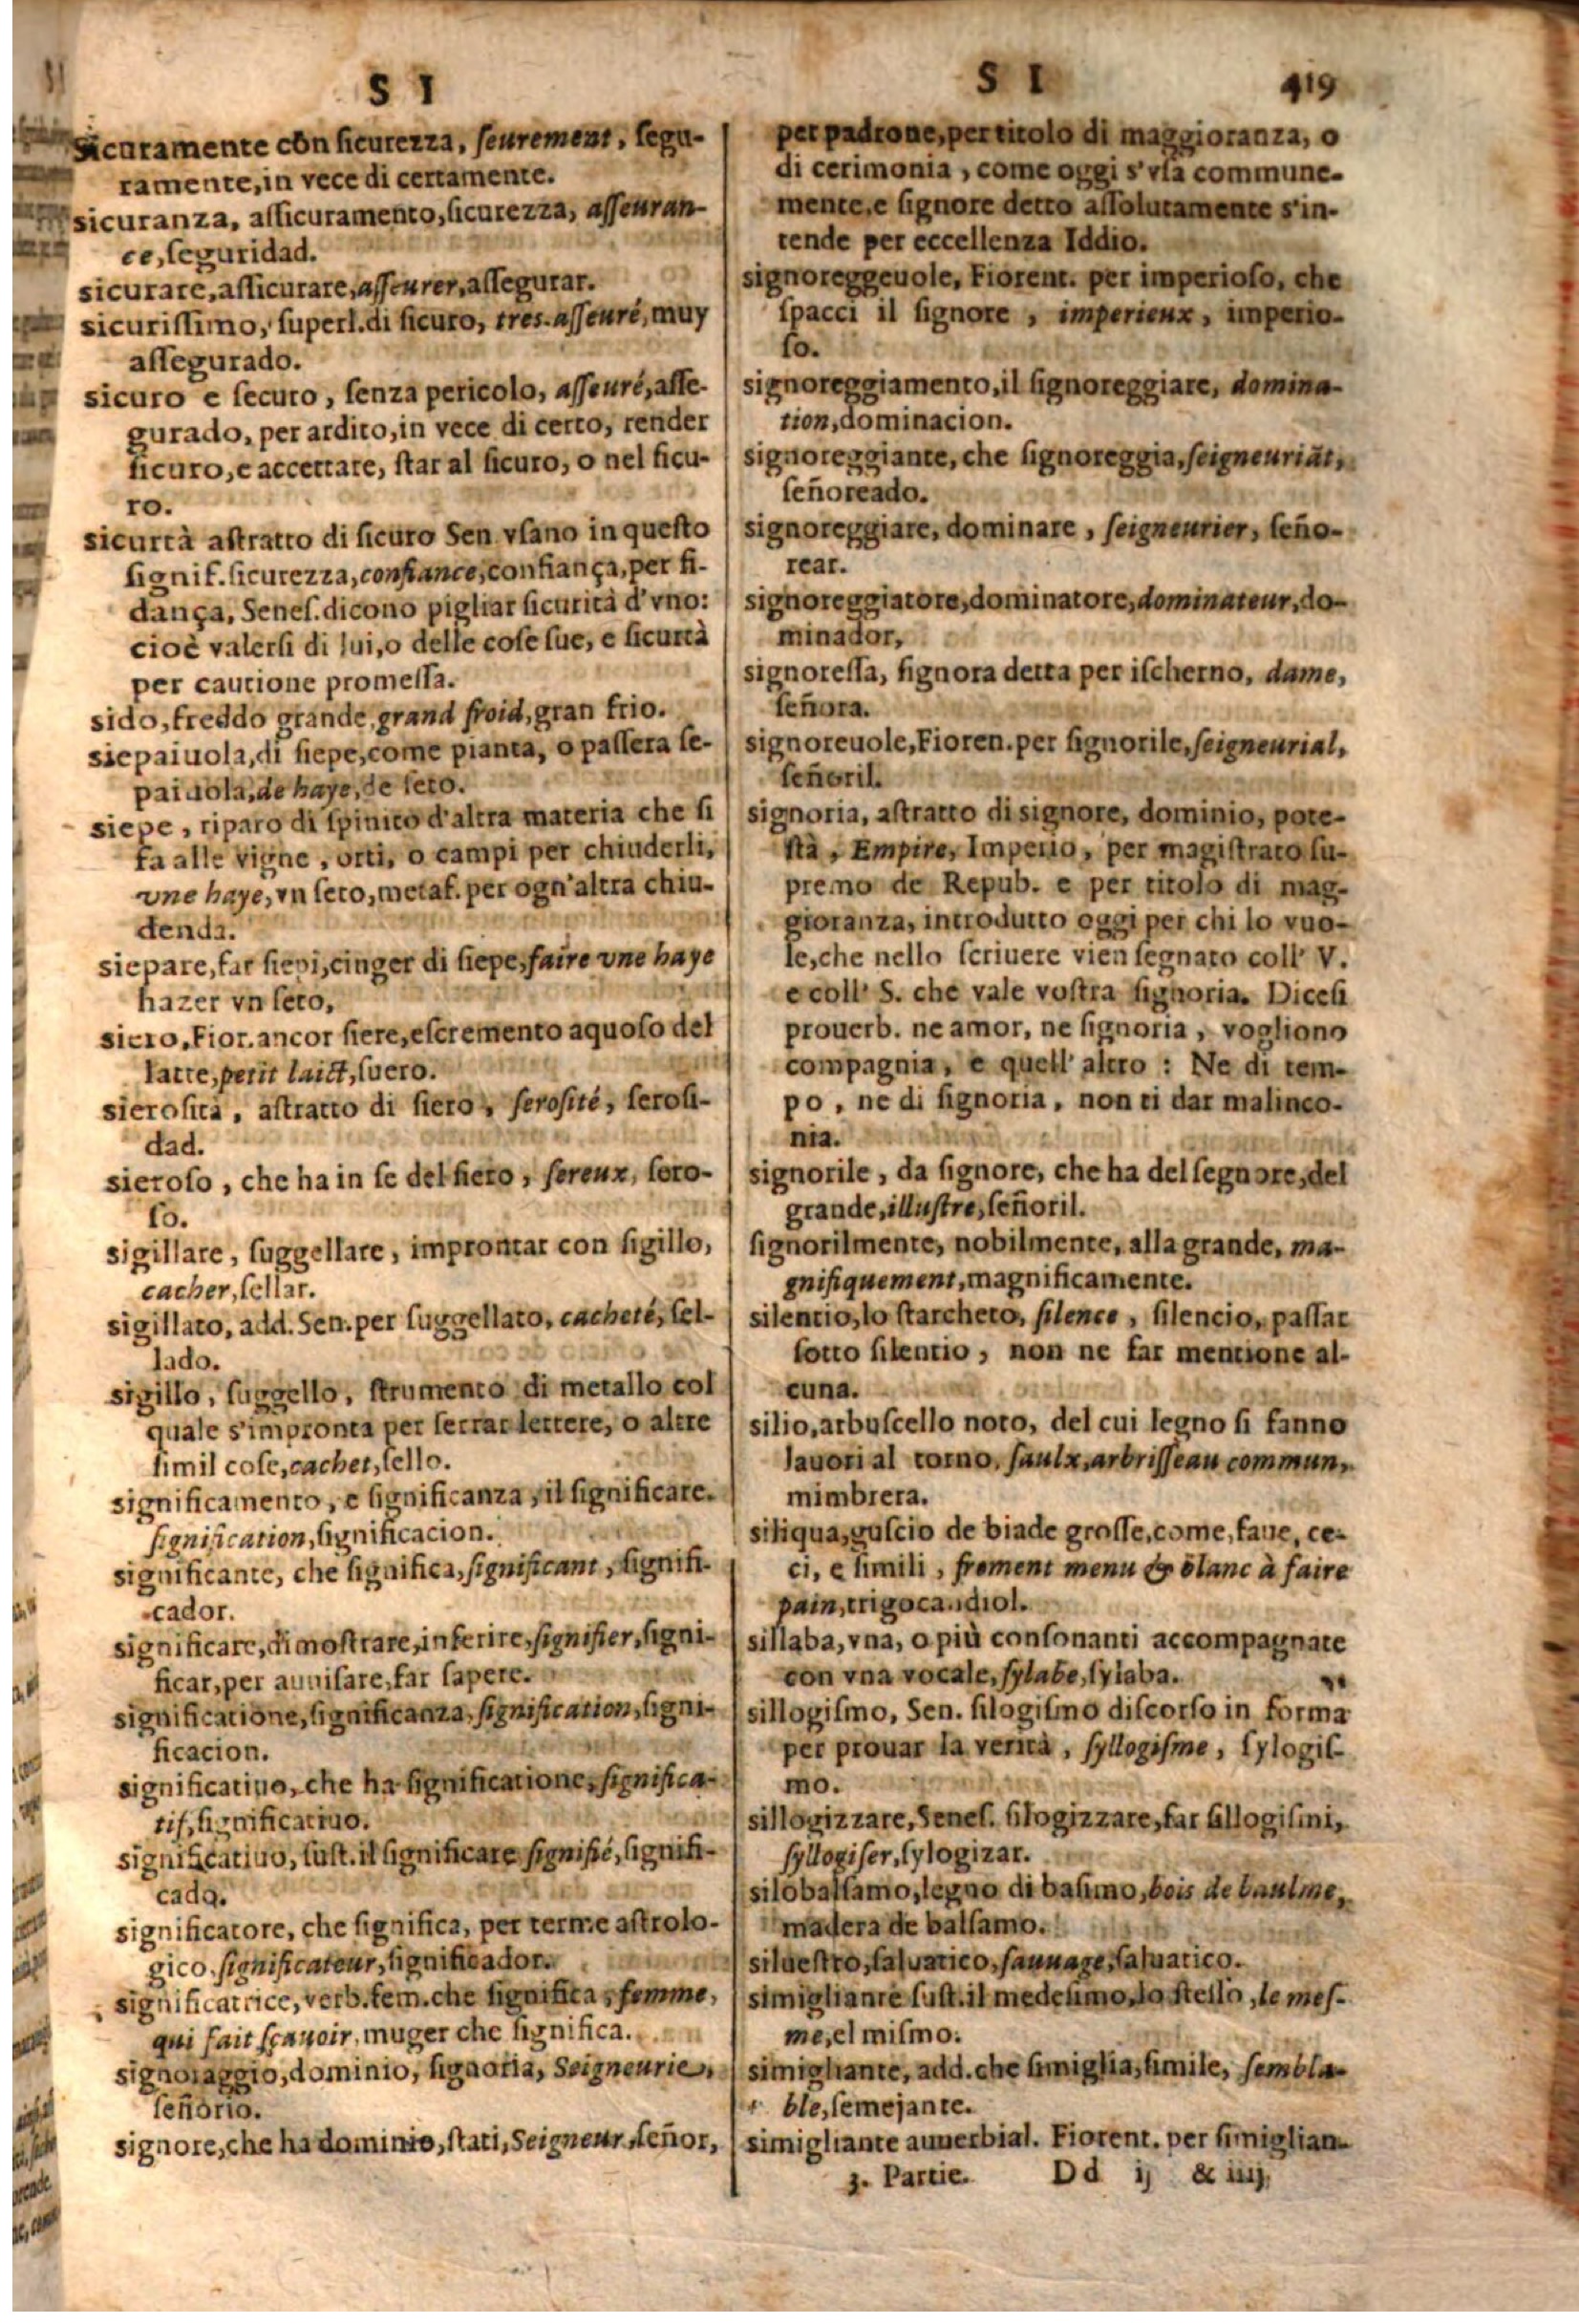 S I
Sicuramente cõn ſicurezza, ſeurement, ſegu-
ramente, in vece di certamente.
sicuranza, aſſicuramento, ſicurezza, aſſeuran-
ce, ſeguridad.
sicurare, aſſicurare, aſſeurer, aſſegurar.
sicuriſſimo, ſuperl. di ſicuro, tres-aſſeuré, muy
aſſegurado.
sicuro e ſecuro, ſenza pericolo, aſſeuré, aſſe-
gurado, per ardito, in vece di certo, render
ſicuro, e accertare, ſtar al ſicuro, o nel ſicu-
ro.
sicurtà aſtratto di ſicuro Sen vſano in queſto
ſignif. ſicurezza, confiance, confiança, per fi-
dança, Seneſ. dicono pigliar ſicurità d'vno:
cioè valerſi di lui, o delle coſe ſue, e ſicurtà
per cautione promeſſa.
sido, freddo grande, grand froid, gran frio.
siepaiuola, di ſiepe, come pianta, o paſſera ſe-
paiuola, de haye, de ſeto.
siepe, riparo di ſpini ò d'altra materia che ſi
fa alle vigne, orti, o campi per chiuderli,
vne haye, vn ſeto, metaf. per ogn'altra chiu-
denda.
siepare, far ſiepi, cinger di ſiepe, faire vne haye
hazer vn ſeto,
siero, Fior. ancor ſiere, eſcremento aquoſo del
latte, petit laict, ſuero.
sieroſità, aſtratto di ſiero, ſeroſité, ſeroſi-
dad.
sieroſo, che ha in ſe del ſiero, ſereux, ſero-
ſo.
sigillare, ſuggellare, improntar con ſigillo,
cacher, ſellar.
sigillato, add. Sen. per ſuggellato, cacheté, ſel-
lado.
sigillo, ſuggello, ſtrumento di metallo col
quale s'impronta per ſerrar lettere, o altre
ſimil coſe, cachet, ſello.
significamento, e ſignificanza, il ſignificare.
ſignification, ſignificacion.
significante, che ſignifica, ſignificant, ſignifi-
cador.
significare, dimoſtrare, inferire, ſignifier, ſigni-
ficar, per auuiſare, far ſapere.
significatione, ſignificanza, ſignification, ſigni-
ficacion.
significatiuo, che ha ſignificatione, ſignifica-
tif, ſignificatiuo.
significatiuo, ſuſt. il ſignificare ſignifié, ſignifi-
cado.
significatore, che ſignifica, per terme aſtrolo-
gico. ſignificateur, ſignificador.
significatrice, verb. fem. che ſignifica, femme,
qui fait ſçauoir, muger che ſignifica.
signoraggio, dominio, ſignoria, Seigneurie,
ſeñorio.
signore, che ha dominio, ſtati, Seigneur, ſeñor,
S I 419
per padrone, per titolo di maggioranza, o
di cerimonia, come oggi s'vſa commune-
mente, e ſignore detto aſſolutamente s'in-
tende per eccellenza Iddio.
signoreggeuole, Fiorent. per imperioſo, che
ſpacci il ſignore, imperieux, imperio-
ſo.
signoreggiamento, il ſignoreggiare, domina-
tion, dominacion.
signoreggiante, che ſignoreggia, ſeigneuriãt,
ſeñoreado.
signoreggiare, dominare, ſeigneurier, ſeño-
rear.
signoreggiatore, dominatore, dominateur, do-
minador,
signoreſſa, ſignora detta per iſcherno, dame,
ſeñora.
signoreuole, Fioren. per ſignorile, ſeigneurial,
ſeñoril.
signoria, aſtratto di signore, dominio, pote-
ſtà, Empire, Imperio, per magiſtrato ſu-
premo de Repub. e per titolo di mag-
gioranza, introdutto oggi per chi lo vuo-
le, che nello ſcriuere vien ſegnato coll' V.
e coll' S. che vale voſtra ſignoria. Diceſi
prouerb. ne amor, ne ſignoria, vogliono
compagnia, e quell' altro: Ne di tem-
po, ne di ſignoria, non ti dar malinco-
nia.
signorile, da ſignore, che ha del ſegnore, del
grande, illuſtre, ſeñoril.
ſignorilmente, nobilmente, alla grande, ma-
gnifiquement, magnificamente.
silentio, lo ſtarcheto, ſilence, ſilencio, paſſar
ſotto ſilentio, non ne far mentione al-
cuna.
silio, arbuſcello noto, del cui legno ſi fanno
lauori al torno, ſaulx, arbriſſeau commun,
mimbrera.
siliqua, guſcio de biade groſſe, come, faue, ce-
ci, e ſimili, froment menu & blanc à faire
pain, trigocandiol.
sillaba, vna, o più conſonanti accompagnate
con vna vocale, ſylabe, ſylaba.
sillogiſmo, Sen. ſilogiſmo diſcorſo in forma
per prouar la verità, ſyllogiſme, ſylogiſ-
mo.
sillogizzare, Seneſ. ſilogizzare, far ſillogiſmi,
ſyllogiſer, ſylogizar.
silobalſamo, legno di baſimo, bois de baulme,
madera de balſamo.
siluestro, ſaluatico, ſauuage, ſaluatico.
simigliante ſuſt. il medeſimo, lo ſteſſo, le meſ-
me, el miſmo.
simigliante, add. che ſimiglia, ſimile, ſembla-
ble, ſemejante.
simigliante auuerbial. Fiorent. per ſimiglian-
3. Partie. Dd ij & iiij.